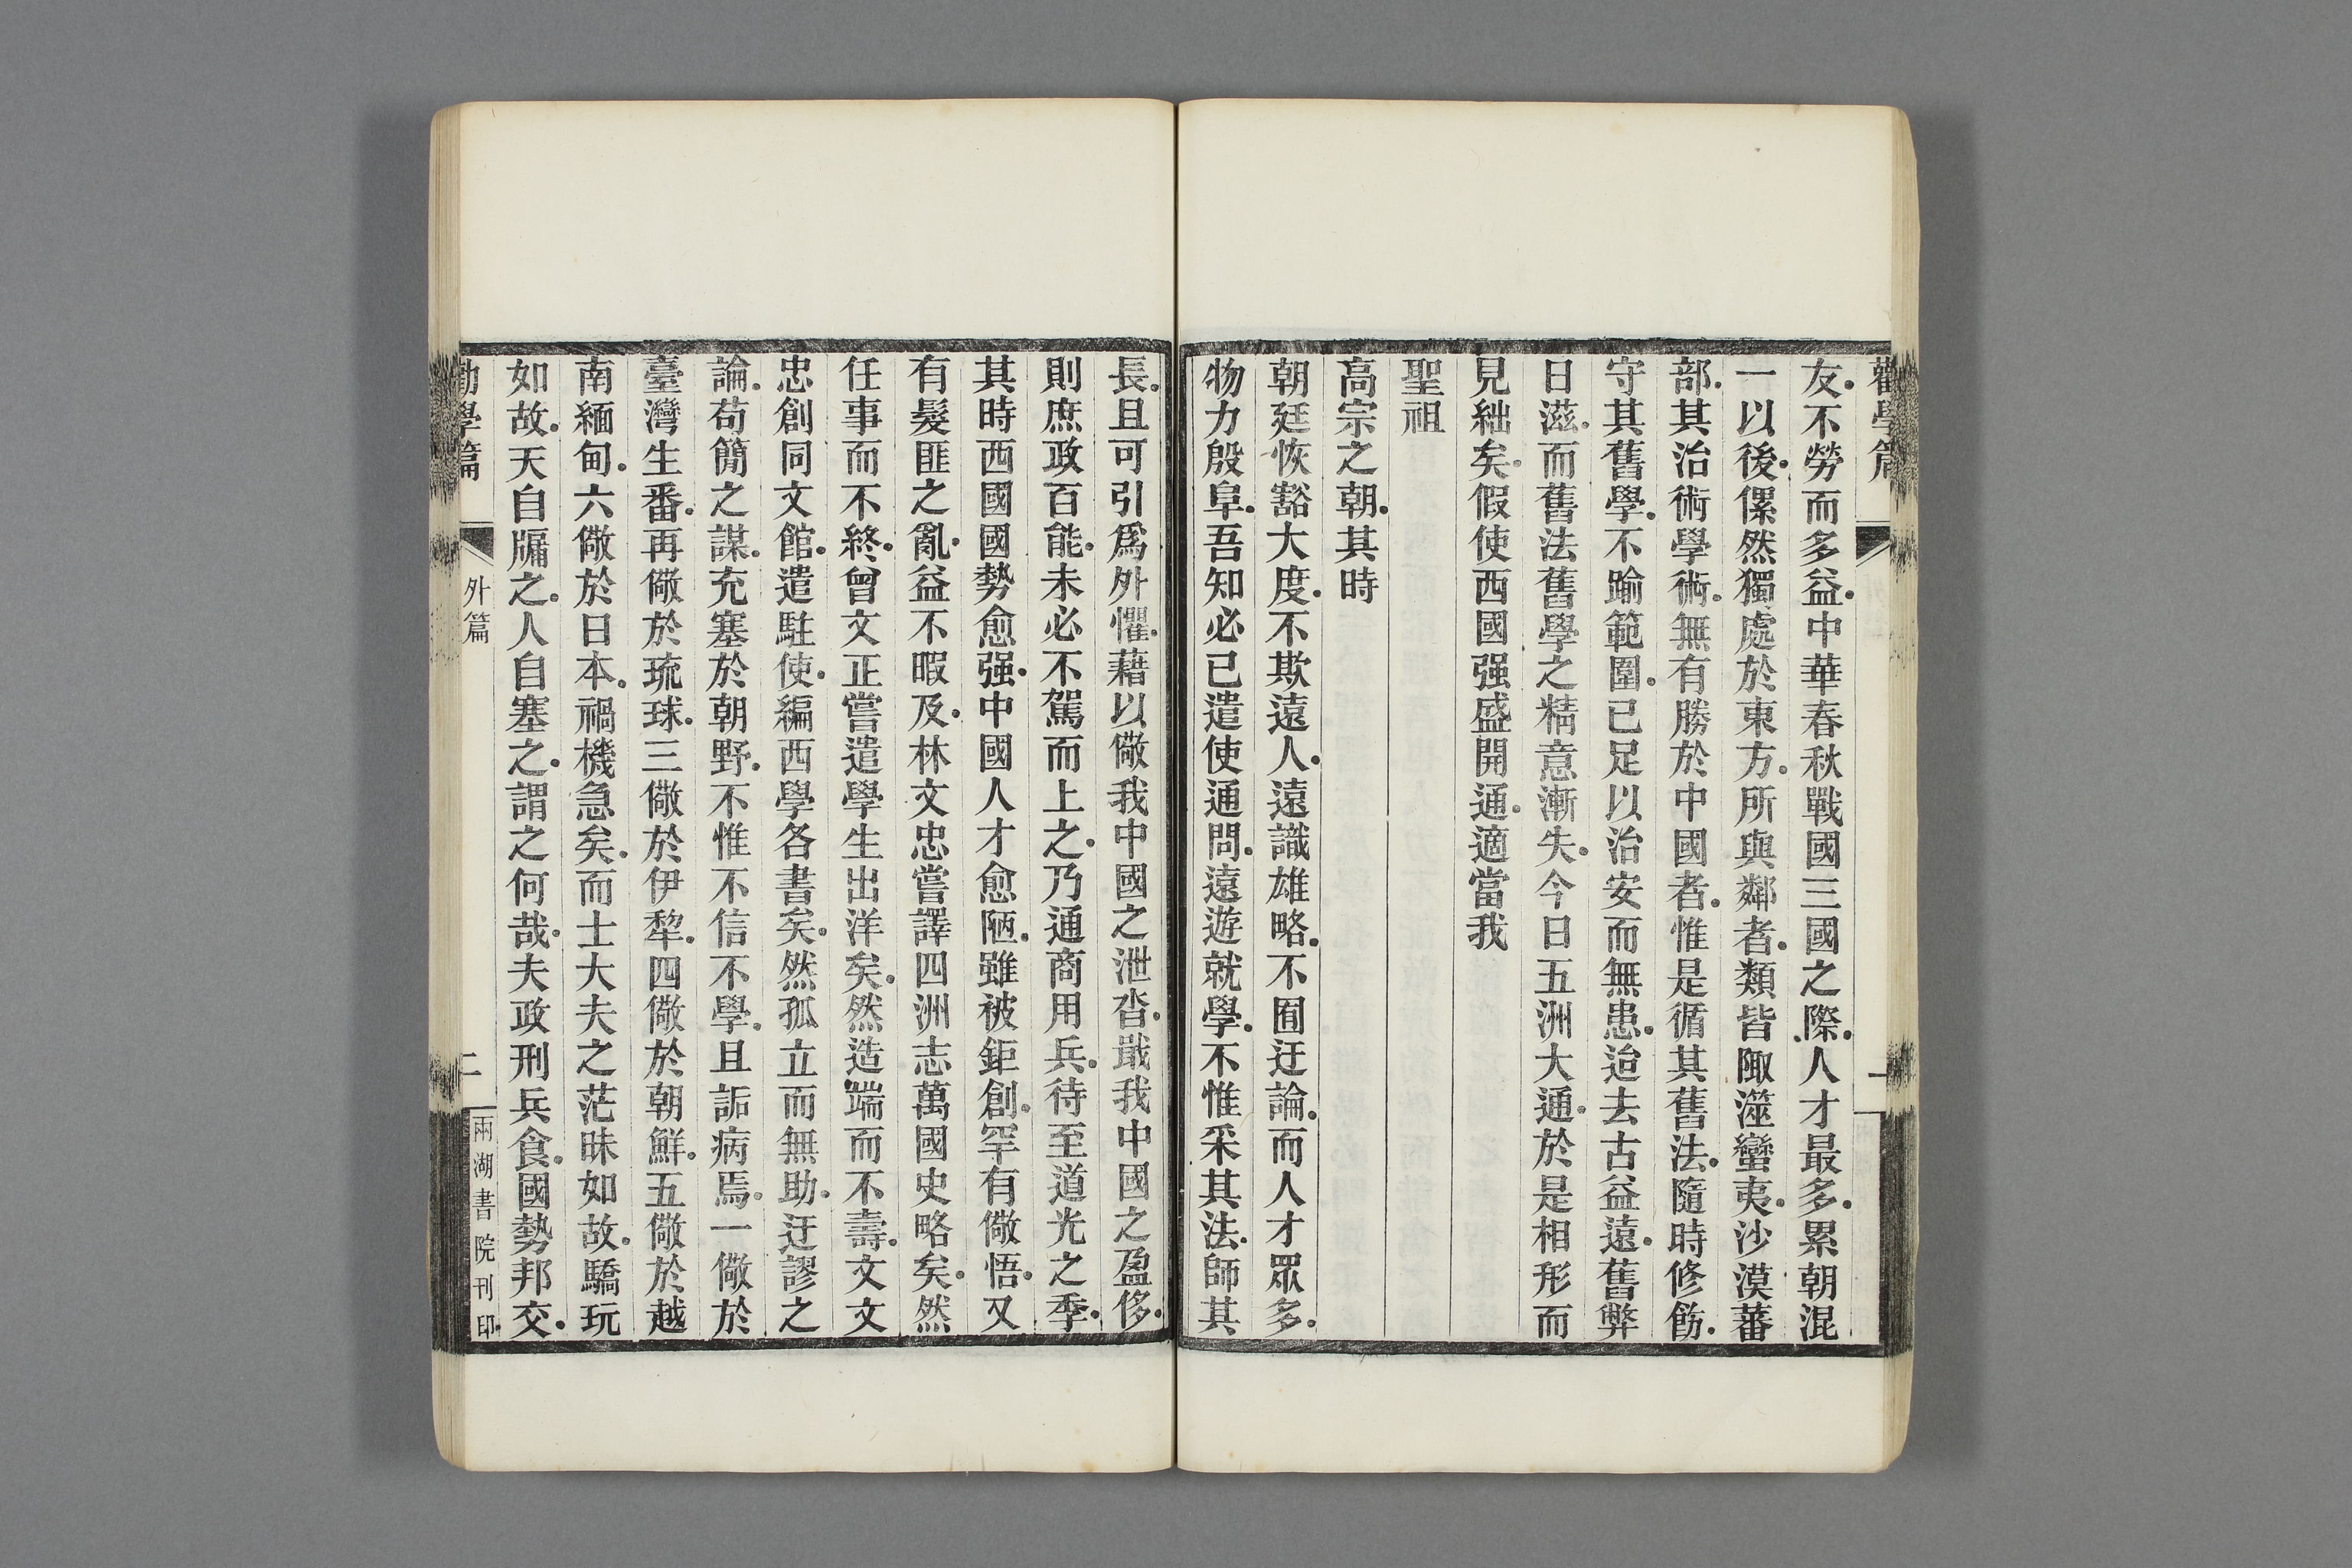 勸學篇
一
友.不勞而多益.中華春秋戰國三國之際.人才最多.累朝混
一以後.傫然獨處於東方.所與鄰者.類皆陬澨蠻夷.沙漠蕃
部.其治術學術.無有勝於中國者.惟是循其舊法.隨時修飭.
守其舊學.不踰範圍.已足以治安而無患.迨去古益遠.舊弊
日滋.而舊法舊學之精意漸失.今日五洲大通.於是相形而
見絀矣.假使西國强盛開通.適當我
聖祖
高宗之朝.其時
朝廷恢豁大度.不欺遠人.遠識雄略.不囿迂論.而人才眾多.
物力殷阜.吾知必已遣使通問.遠遊就學.不惟采其法.師其
長.且可引爲外懼.藉以儆我中國之泄沓.戢我中國之盈侈.
則庶政百能.未必不駕而上之.乃通商用兵.待至道光之季.
其時西國國勢愈强.中國人才愈陋.雖被鉅創.罕有儆悟.又
有髮匪之亂.益不暇及.林文忠嘗譯四洲志萬國史略矣.然
任事而不終.曾文正嘗遣學生出洋矣.然造端而不壽.文文
忠創同文館.遣駐使.編西學各書矣.然孤立而無助.迂謬之
論.苟簡之謀.充塞於朝野.不惟不信不學.且詬病焉.一儆於
臺灣生番.再儆於琉球.三儆於伊犂.四儆於朝鮮.五儆於越
南緬甸.六儆於日本.禍機急矣.而士大夫之茫昧如故.驕玩
如故.天自牖之.人自塞之.謂之何哉.夫政刑兵食.國勢邦交.
勸學篇
外篇
二
兩湖書院刊印